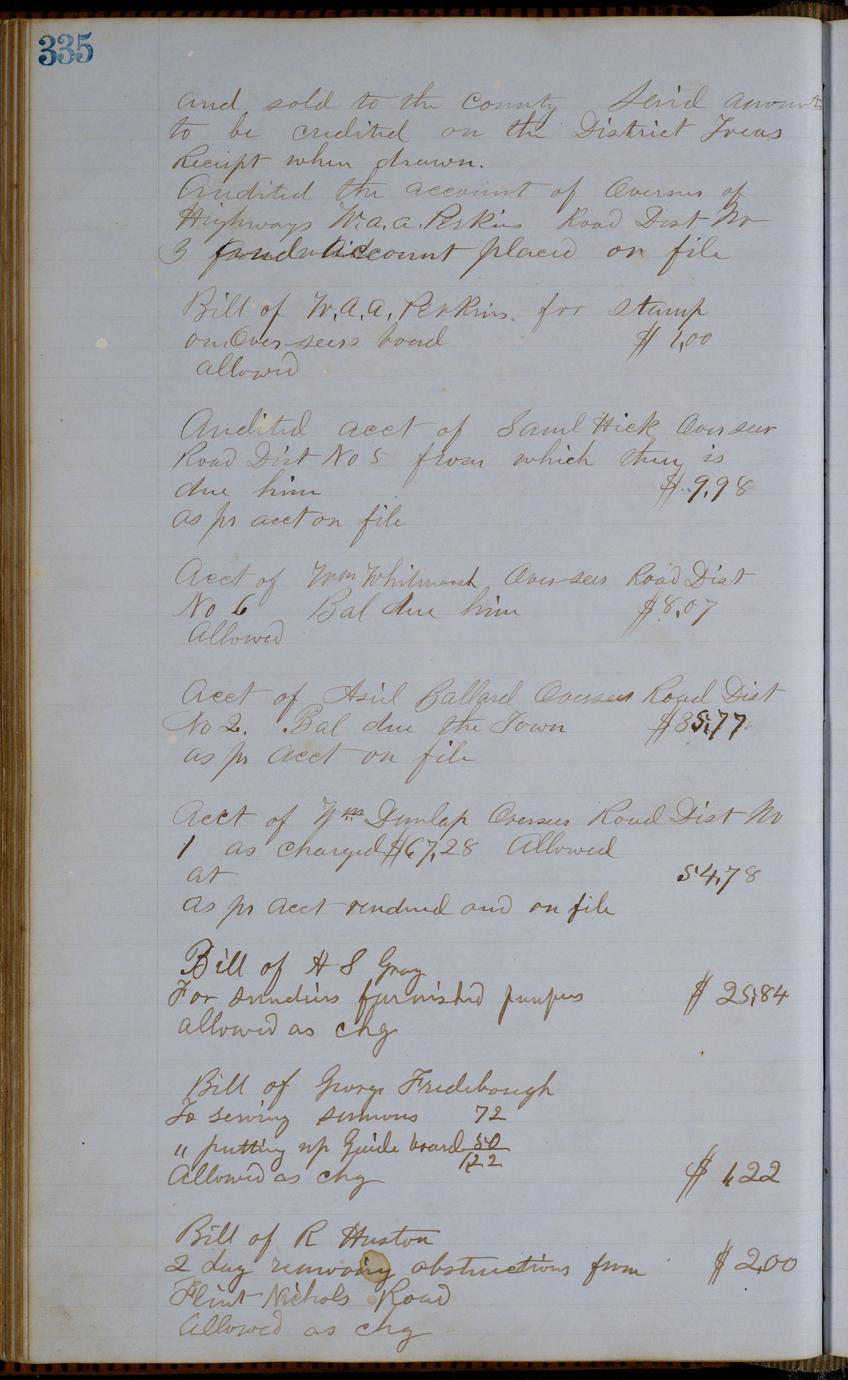 335
and sold to the County Said amounts
to be credited on the District Treas
Receipt when drawn.
Audited the account of Overseer of
Highways W.A.A. Perkins Road Dist No
3 account placed on file
Bill of W.A.A. Perkins for stamp
on Overseers bond $1,00
allowed
Audited acct of Saml Hick Overseer
Road Dist No 5 from which they is
due him $9,98
as pr acct on file
Acct of Wm Whitmarsh Overseer Road Dist
No 6 Bal due him $8,07
Allowed
Acct of Asil Ballard Overseer Road Dist
No 2. Bal due the Town $35,77
as pr Acct on file
Acct of Wm Dunlap Overseer Road Dist No
1 as charged $67,28 Allowed
at 54,78
as pr acct rendered and on file
Bill of H S Gray
For sundries furnished paupers $25,84
allowed as chg
Bill of George Fridebough
To serving sumons 72
" putting up Guide board 50
1,22
Allowed as chg $1,22
Bill of R Huston
2 day removing obstructions from $2,00
Flint Nichols Road
Allowed as chg